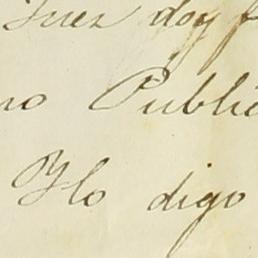 Juez doy f
no Públic
Ylo digo